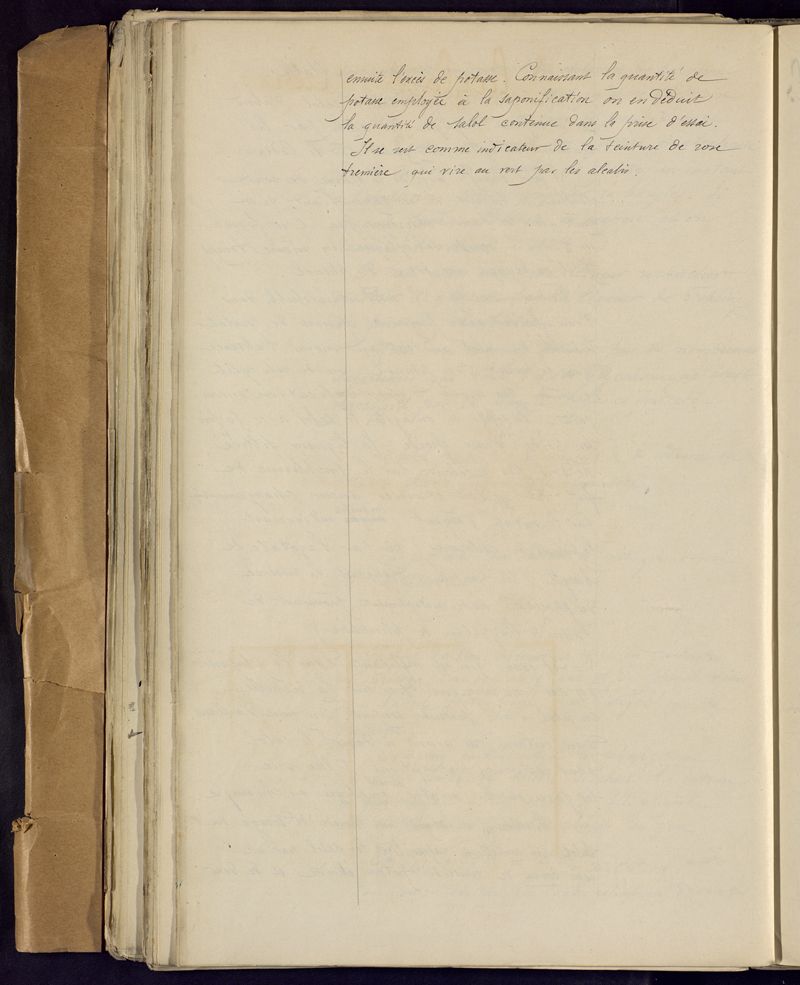 ensuite l'excès de potasse. Connaissant la quantité de
potasse employée à la saponification on en déduit
la quantité de salol contenue dans la prise d'essai.
Il se sert comme indicateur de la teinture de rose
tremière qui vire au vert par les alcalis.